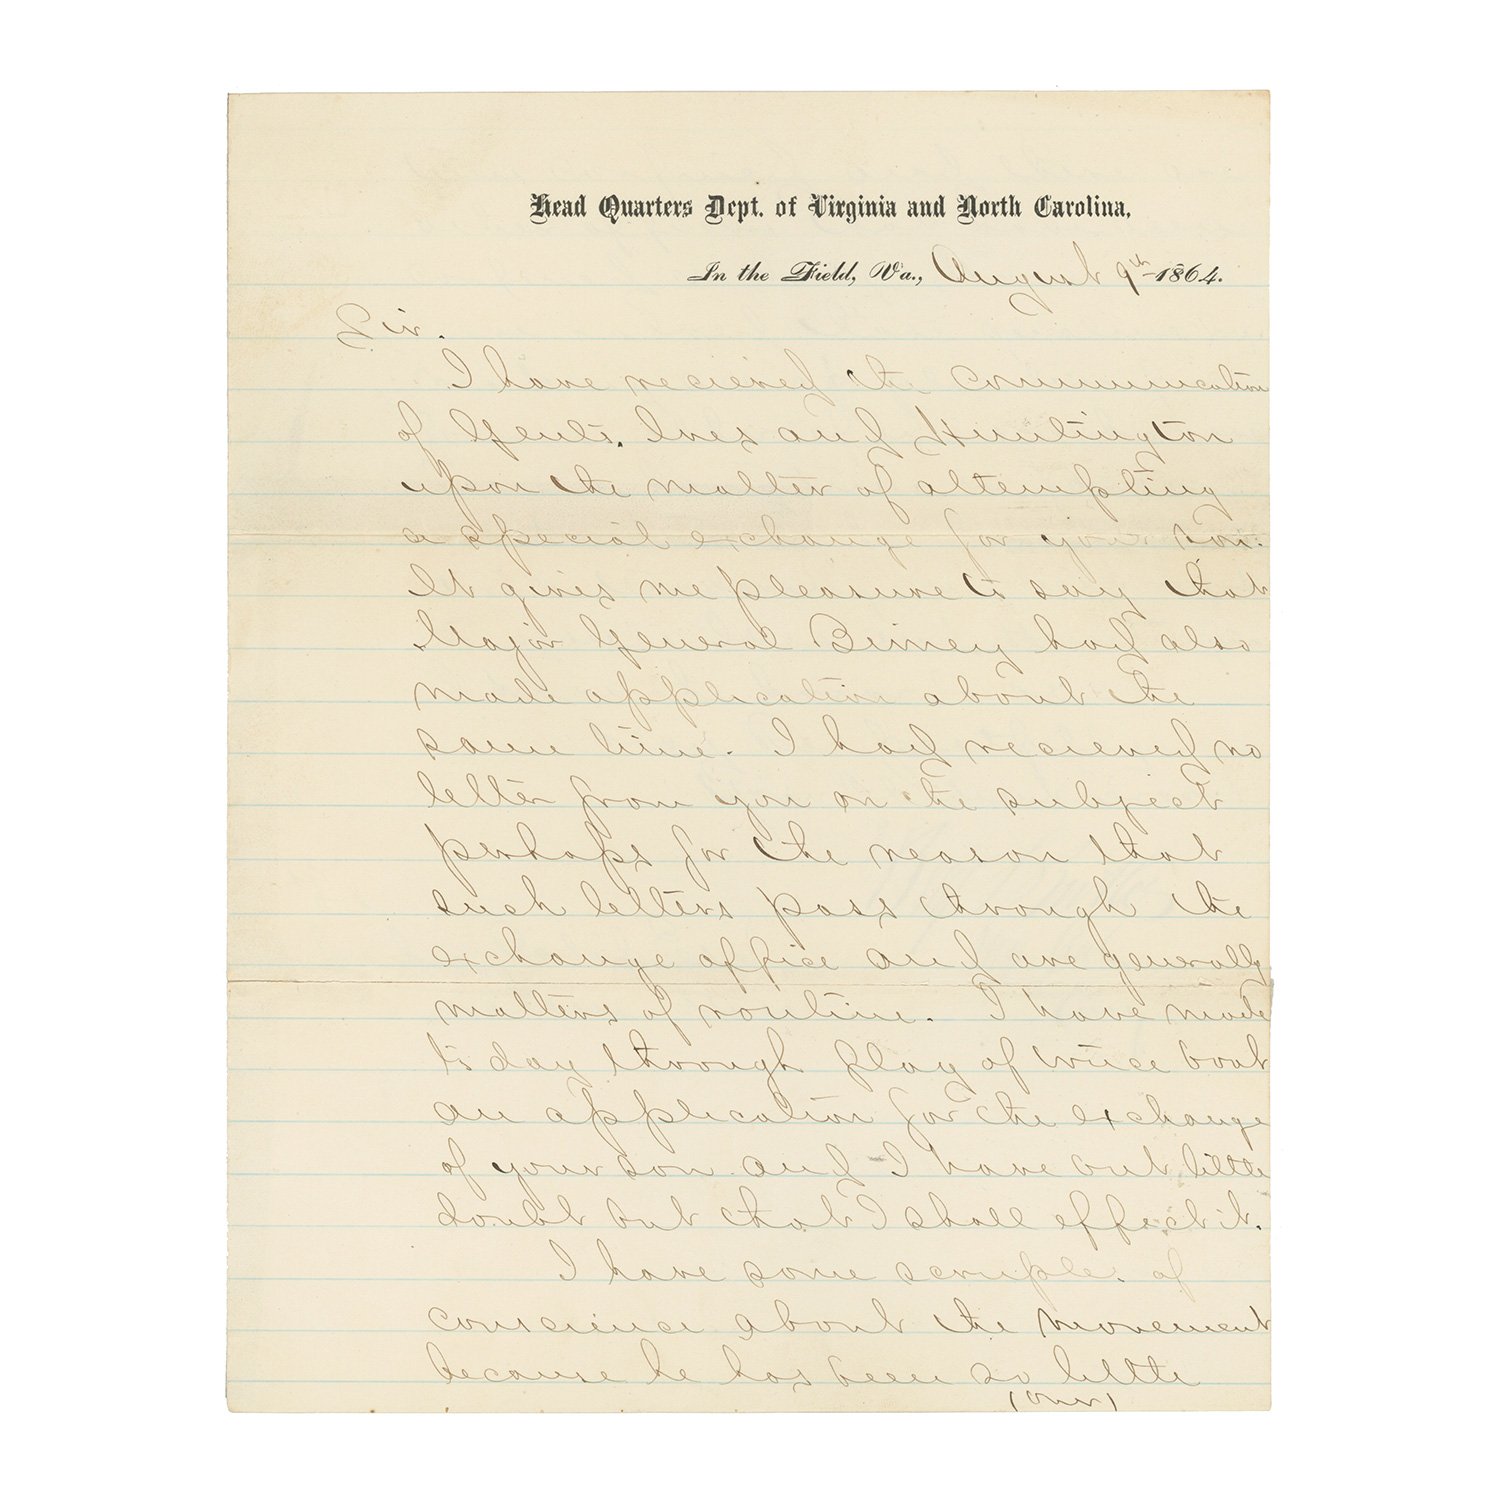 Head Quarters Dept. of Virginia and North Carolina,
In the Field, Va., August 9th 1864.
Sir.
I have recieved the communication
of Gents. Ives and Huntington
upon the matter of attempting
a special exchange for your son.
It gives me pleasure to say that
Major General Birney had also
made application about the
same time. I had recieved no
letter from you on the subject
perhaps for the reason that
such letters pass through the
exchange office and are generally
matters of routine. I have made
to day through flag of truce boat
an application for the exchange
of your son and I have but little
doubt but that I shall effect it.
I have some scruples of
conscience about the movement
because he has been so little
(over)